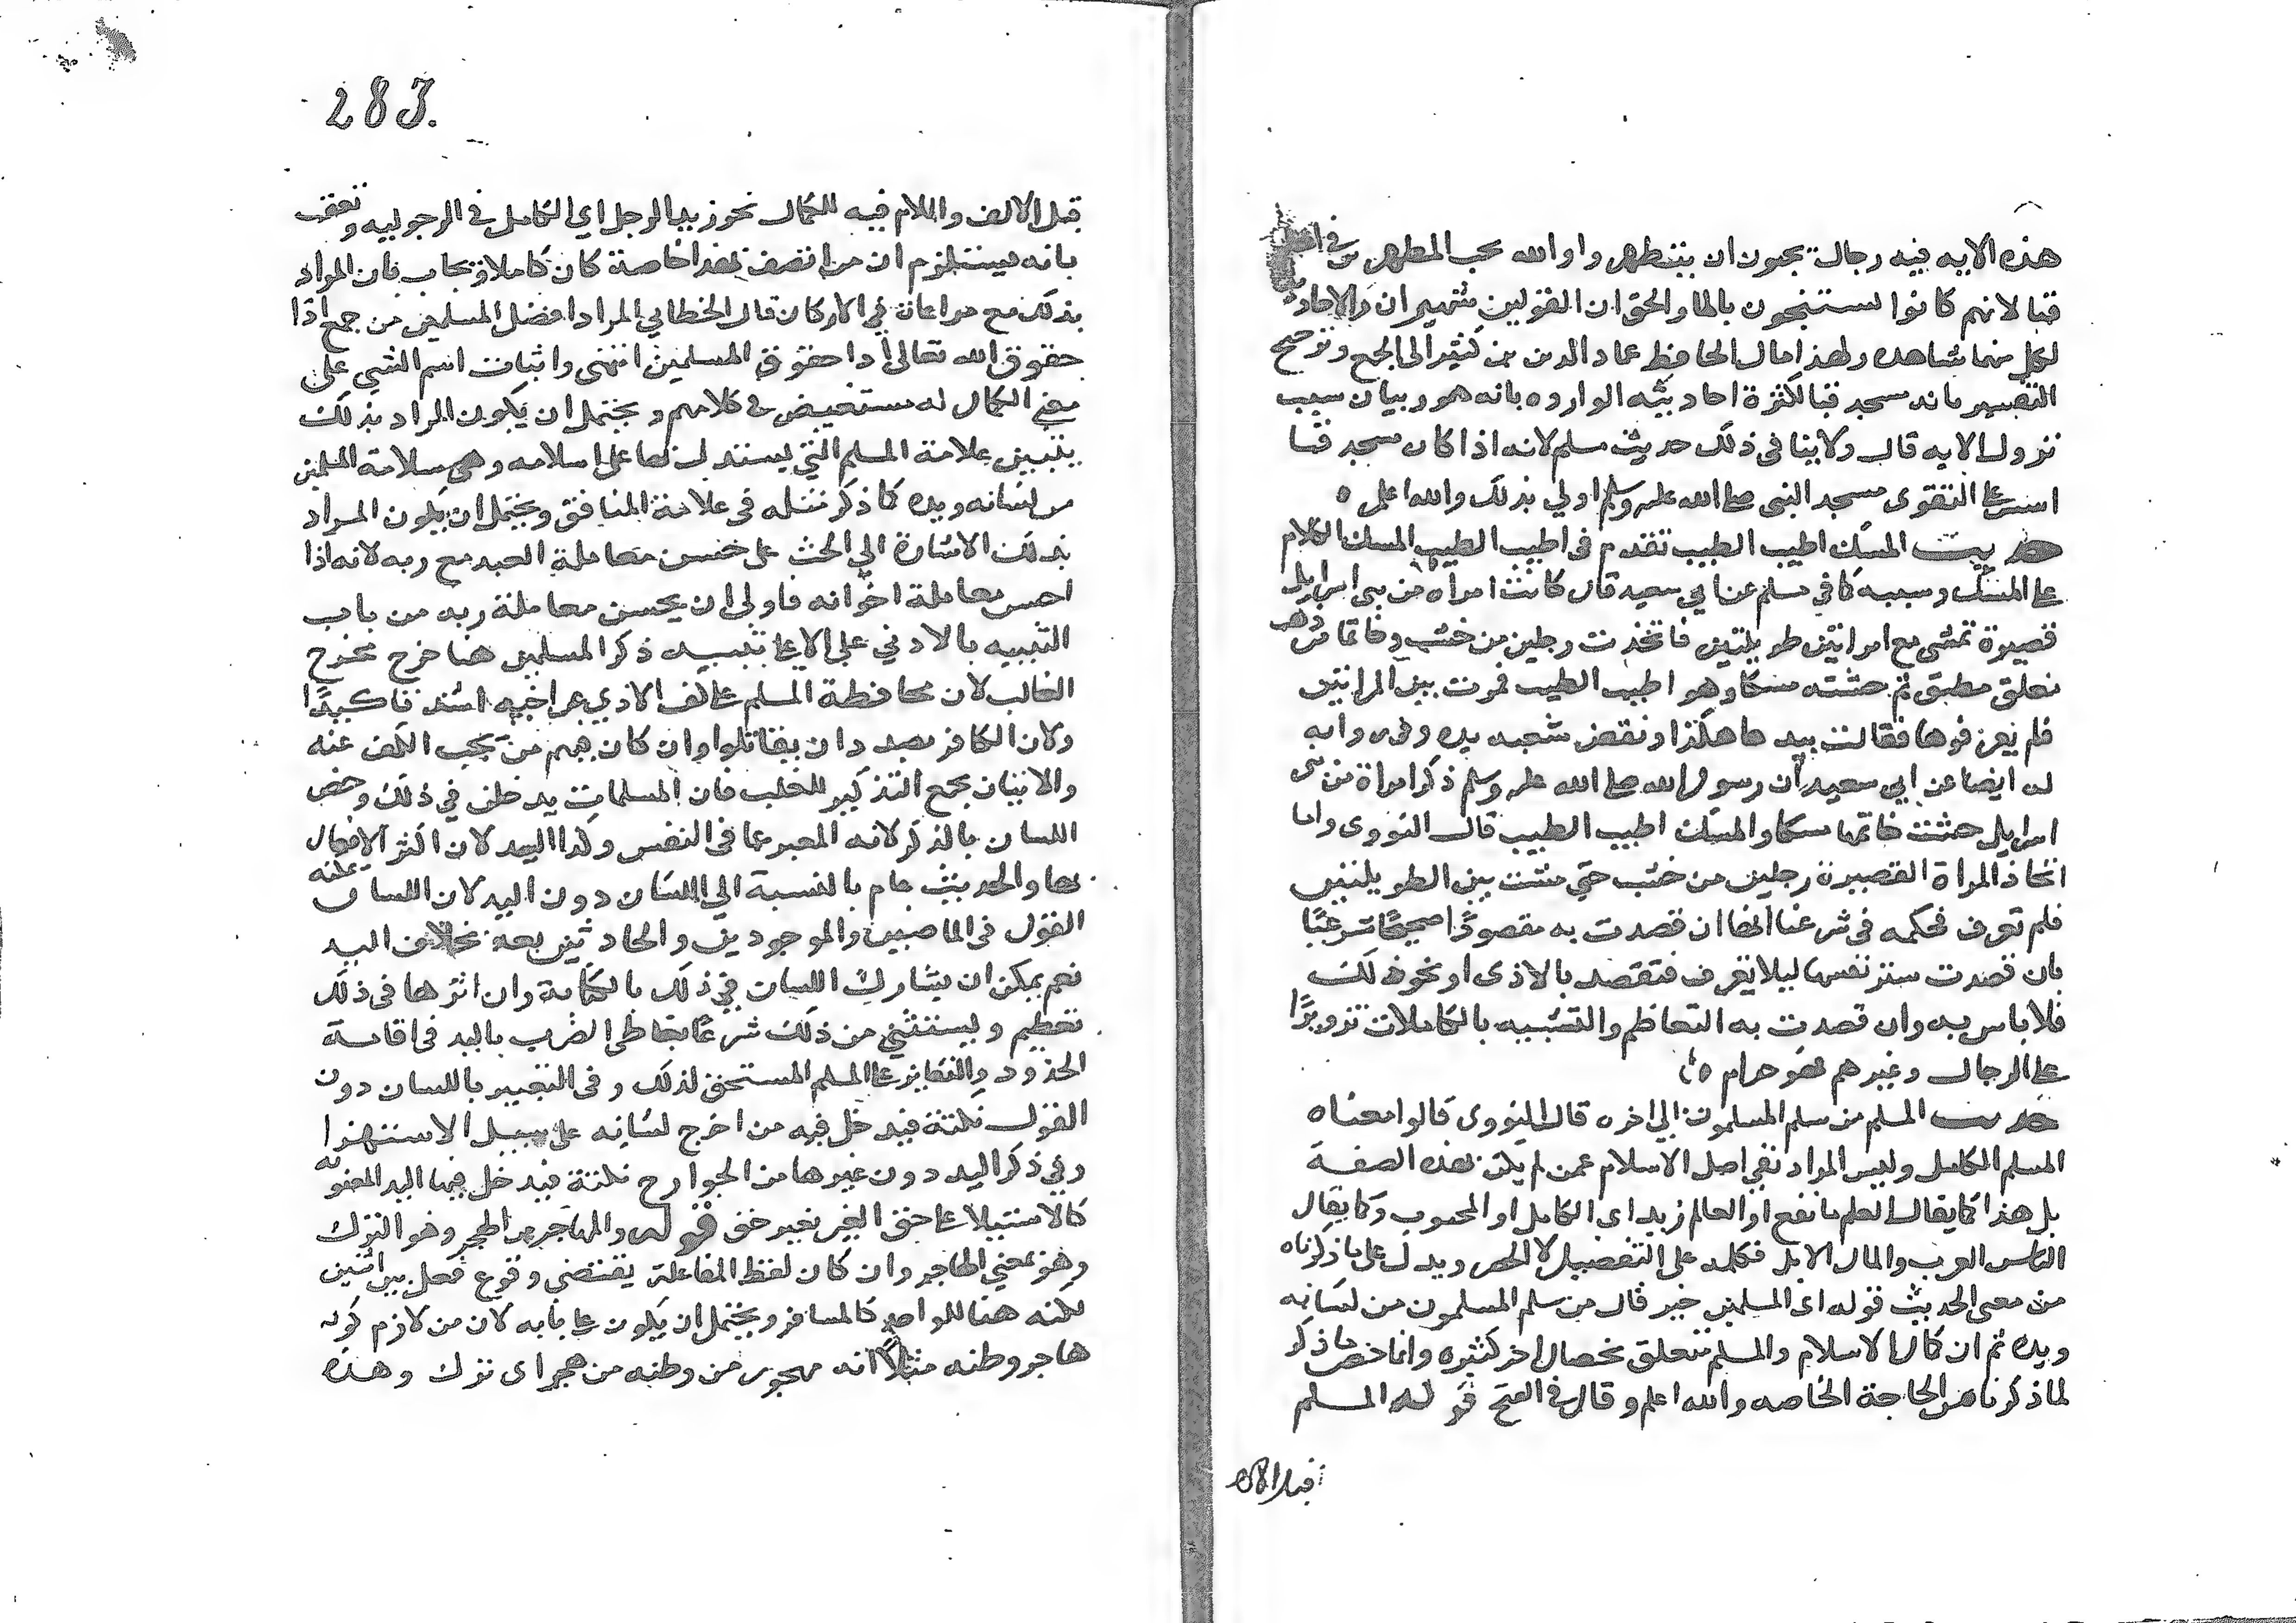 هذه الايه فيه رجال يحبون ان يتطهروا والله يحب المطهرين في اهل
قبا لانهم كانوا يستنجون بالما والحق ان القولين شهيران والاحاديث
لكل منهما شاهده ولهذا مال الحافظ عماد الدين بن كثير الى الجمع وترجيح
التفسير بانه مسجد قبا لكثرة احاديثه الوارده بانه هو وبيان سبب
نزول الايه قال ولا ينافى ذلك حديث مسلم لانه اذا كان مسجد قبا
اسس على التقوى مسجد النبى صلى الله عليه وسلم اولي بذلك والله اعلم ه
حديث المسك اطيب الطيب تقدم فى اطيب الطيب المسك الكلام
على المسك وسببه كما في مسلم عن ابي سعيد قال كانت امراه من بني اسرايل
قصيرة تمشى مع امراتين طويلتين فاتخذت رجلين من خشب وخاتما من ذهب
مغلق مطبق ثم حشته مسكا وهو اطيب الطيب فمرت بين المراتين
فلم يعرفوها فقالت بيدها هكذا ونفض شعبه يده وفى روايه
له ايضا عن ابي سعيد ان رسول الله صلى الله عليه وسلم ذكر امراة من بنى
اسرايل حشت خاتمها مسكا والمسك اطيب الطيب قال النووى واما
اتخاذ المراة القصيرة رجلين من خشب حتي مشت بين الطويلتين
فلم تعرف فحكمه فى شرعنا انها ان قصدت به مقصودًا صحيحًا شرعيًا
بان قصدت ستر نفسها ليلا تعرف فتقصد بالاذى او نحو ذلك
فلا باس به وان قصدت به التعاظم والتشبيه بالكاملات تزويرًا
على الرجال وغيرهم فهو حرام ه
حديث المسلم من سلم المسلمون الي اخره قال النووى قالوا معناه
المسلم الكامل وليس المراد نفي اصل الاسلام عمن لم يكن بهذه الصفة
بل هذا كما يقال العلم ما نفع او العالم زيد اى الكامل او المحبوب وكما يقال
الناس العرب والمال الابل فكله على التفضيل لا للحصر ويدل على ما ذكرناه
من معنى الحديث قوله اى المسلمين خير قال من سلم المسلمون من لسانه
ويده ثم ان كمال الاسلام والمسلم متعلق بخصال اخر كثيره وانما خص ما ذكر
لما ذكرنا من الحاجة الخاصه والله اعلم وقال فى الفتح قوله المسلم
قيل الالف
283.
قيل الالف واللام فيه للكمال نحو زيد الرجل اي الكامل في الرجوليه وتعقب
بانه يستلزم ان من اتصف بهذا خاصة كان كاملا ويجاب بان المراد
بذلك مع مراعاة باقي الاركان قال الخطابي المراد افضل المسلمين من جمع اذا
حقوق الله تعالى ادا حقوق المسلمين انتهى واثبات اسم الشي على
معني الكمال له مستفيض في كلامهم ويحتمل ان يكون المراد بذلك
يتبين علامة المسلم التي يستدل بها على اسلامه وهى سلامة المسلمين
من لسانه ويده كما ذكر مثله فى علامة المنافق ويحتمل ان يكون المراد
بذلك الاشارة الي الحث على حسن معاملة العبد مع ربه لانه اذا
احسن معاملة اخوانه فاولى ان يحسن معاملة ربه من باب
التنبيه بالادني على الاعلى تنبيه ذكر المسلمين هنا خرج مخرج
الغالب لان محافظة المسلم على كف الاذي عن اخيه اشد تاكيدًا
ولان الكافر بصدد ان يقاتلوا وان كان فيهم من يجب الكف عنه
والاتيان بجمع التذكير للتغلب فان المسلمات يدخلن في ذلك وخص
اللسان بالذكر لانه المعبر عما فى النفس وكذا اليد لان اكثر الافعال
بها والحديث عام بالنسبة الي اللسان دون اليد لان اللسان يمكنه
القول فى الماضيين والموجودين والحادثين بعد بخلاف اليد
نعم يمكن ان يشارك اللسان في ذلك بالكتابة وان اثرها فى ذلك
تعظيم ويستثني من ذلك شرعًا تعاطى الضرب باليد فى اقامة
الحدود والتعازير على المسلم المستحق لذلك وفى التعبير باللسان دون
القول نكتة فيدخل فيه من اخرج لسانه على سبيل الاستهزا
وفي ذكر اليد دون غيرها من الجوارح نكتة فيدخل فيها اليد المعنويه
كالاستيلا على حق الغير بغير حق قوله والمهاجر من الهجر وهو الترك
وهو بمعني الهاجر وان كان لفظ المفاعلة يقتضى وقوع فعل بين اثنين
لكنه هنا للواحد كالمسافر ويحتمل ان يكون على بابه لان من لازم كونه
هاجر وطنه مثلًا انه مهجور من وطنه من هجر اى ترك وهذه